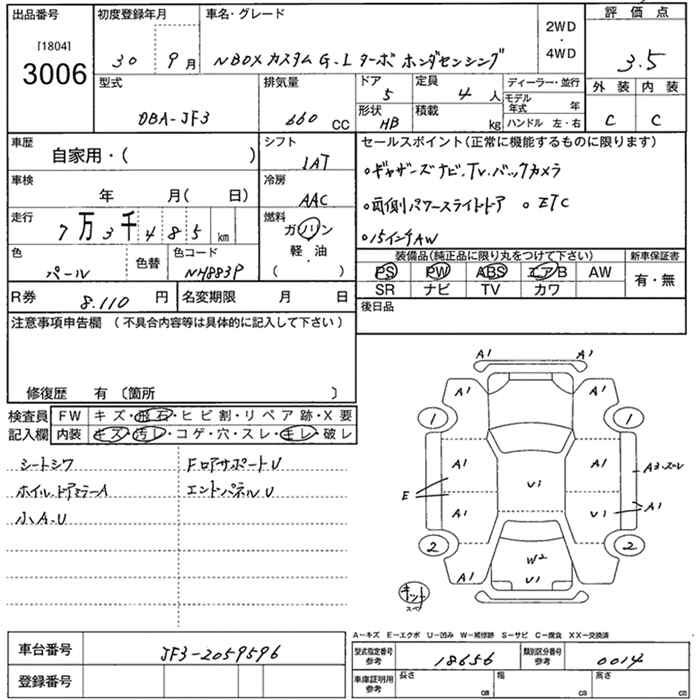 出品番号
[1804]
3006
初度登録年月
30 9月
車名・グレード
NBOX カスタム G・L ターボ ホンダセンシング
2WD
・
4WD
評価点
3.5
外装 内装
C C
型式
DBA-JF3
排気量
660 CC
ドア
5
定員
4 人
形状
HB
積載
kg
ディーラー・並行
モデル年式 年
ハンドル 左・右
車歴
自家用・( )
シフト
IAT
車検
年 月( 日)
冷房
AAC
走行
7万3千485km
燃料
ガソリン
軽・油
( )
色
パール
色替
色コード
NH883P
R券
8.110 円
名変期限 月 日
セールスポイント(正常に機能するものに限ります)
○ギャザーズナビ.Tv.バックカメラ
○両側パワースライドドア ○ETC
○15インチAW
装備品(純正品に限り丸をつけて下さい)
PS PW ABS エアB AW
SR ナビ TV カワ
新車保証書
有・無
後日品
注意事項申告欄(不具合内容等は具体的に記入して下さい)
修復歴 有 〔箇所 〕
検査員記入欄
FW キズ・飛石・ヒビ割・リペア跡・X要
内装 キズ・汚レ・コゲ・穴・スレ・キレ・破レ
シートシワ
ホイル.ドアミラーA
小A.U
Fロアサポートu
エンドパネルu
A1 A1
A1 A1
1 1
A1 A1 A3.スレ
E U1
A1 U1 A1
2 2
W2
A1 U1
キット
スペ
A−キズ E−エクボ U−凹み W−補修跡 S−サビ C−腐食 XX−交換済
車台番号
JF3-2059596
登録番号
型式指定番号
参考
18656
類別区分番号
参考
0014
車庫証明用
参考
長さ cm
幅 cm
高さ cm